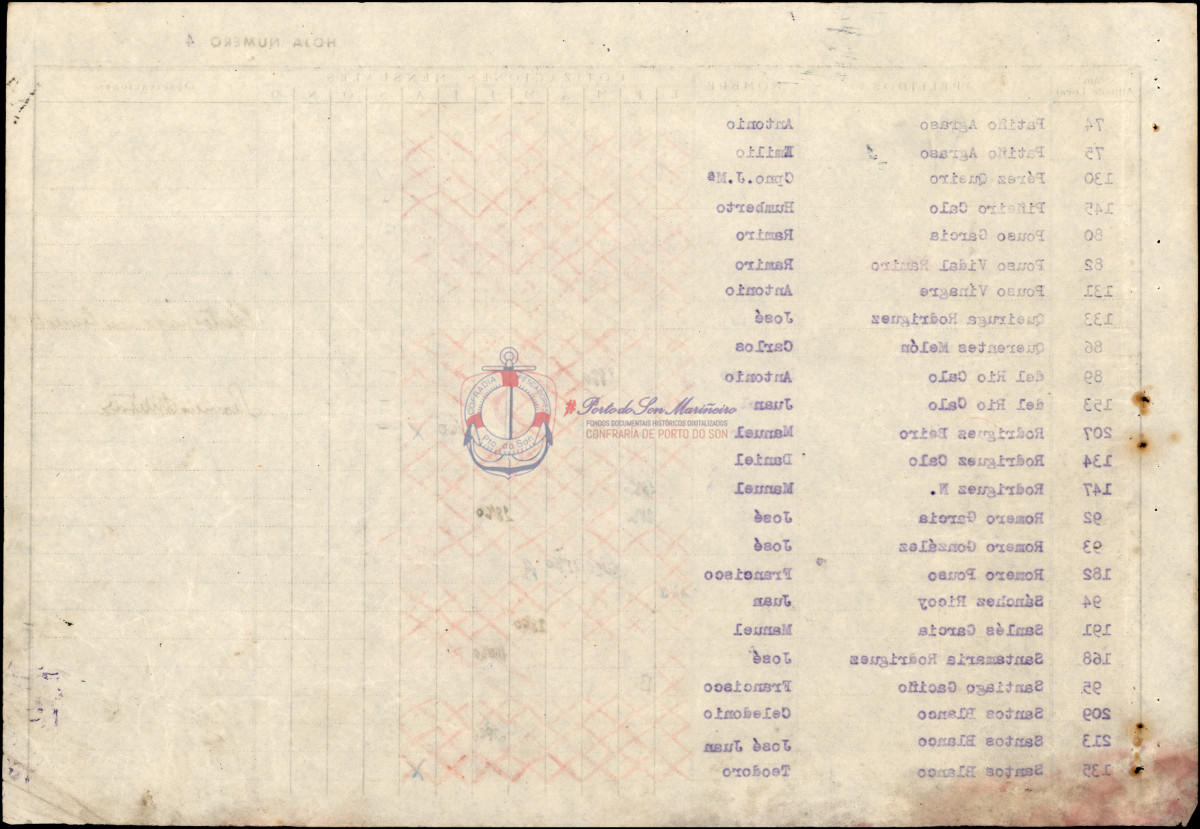 HOJA NUMERO 4
APELLIDOS NOMBRE COTIZACIONES MENSUALES Observaciones
E F M A M J J A S O N D
74 Patiño Agraso Antonio
75 Patiño Agraso Emilio
130 Pérez Queiro Cpno.J.Mª
145 Piñeiro Calo Humberto
80 Pouso Garcia Ramiro
82 Pouso Vidal Ramiro Ramiro
131 Pouso Vinagre Antonio
133 Queiruga Rodriguez José
86 Querentes Melón Carlos
89 del Rio Calo Antonio
153 del Rio Calo Juan
207 Rodriguez Beiro Manuel
134 Rodriguez Calo Daniel
147 Rodriguez N. Manuel
92 Romero Garcia José
93 Romero González José
182 Romero Pouso Francisco
94 Sánchez Ricoy Juan
191 Sanlés Garcia Manuel
168 Santamaria Rodriguez José
95 Santiago Gaciño Francisco
209 Santos Blanco Celedonio
213 Santos Blanco José Juan
135 Santos Blanco Teodoro
COFRADIA PESCADORES
Pto. do Son
#Porto do Son Mariñeiro
FONDOS DOCUMENTAIS HISTÓRICOS DIXITALIZADOS
CONFRARÍA DE PORTO DO SON